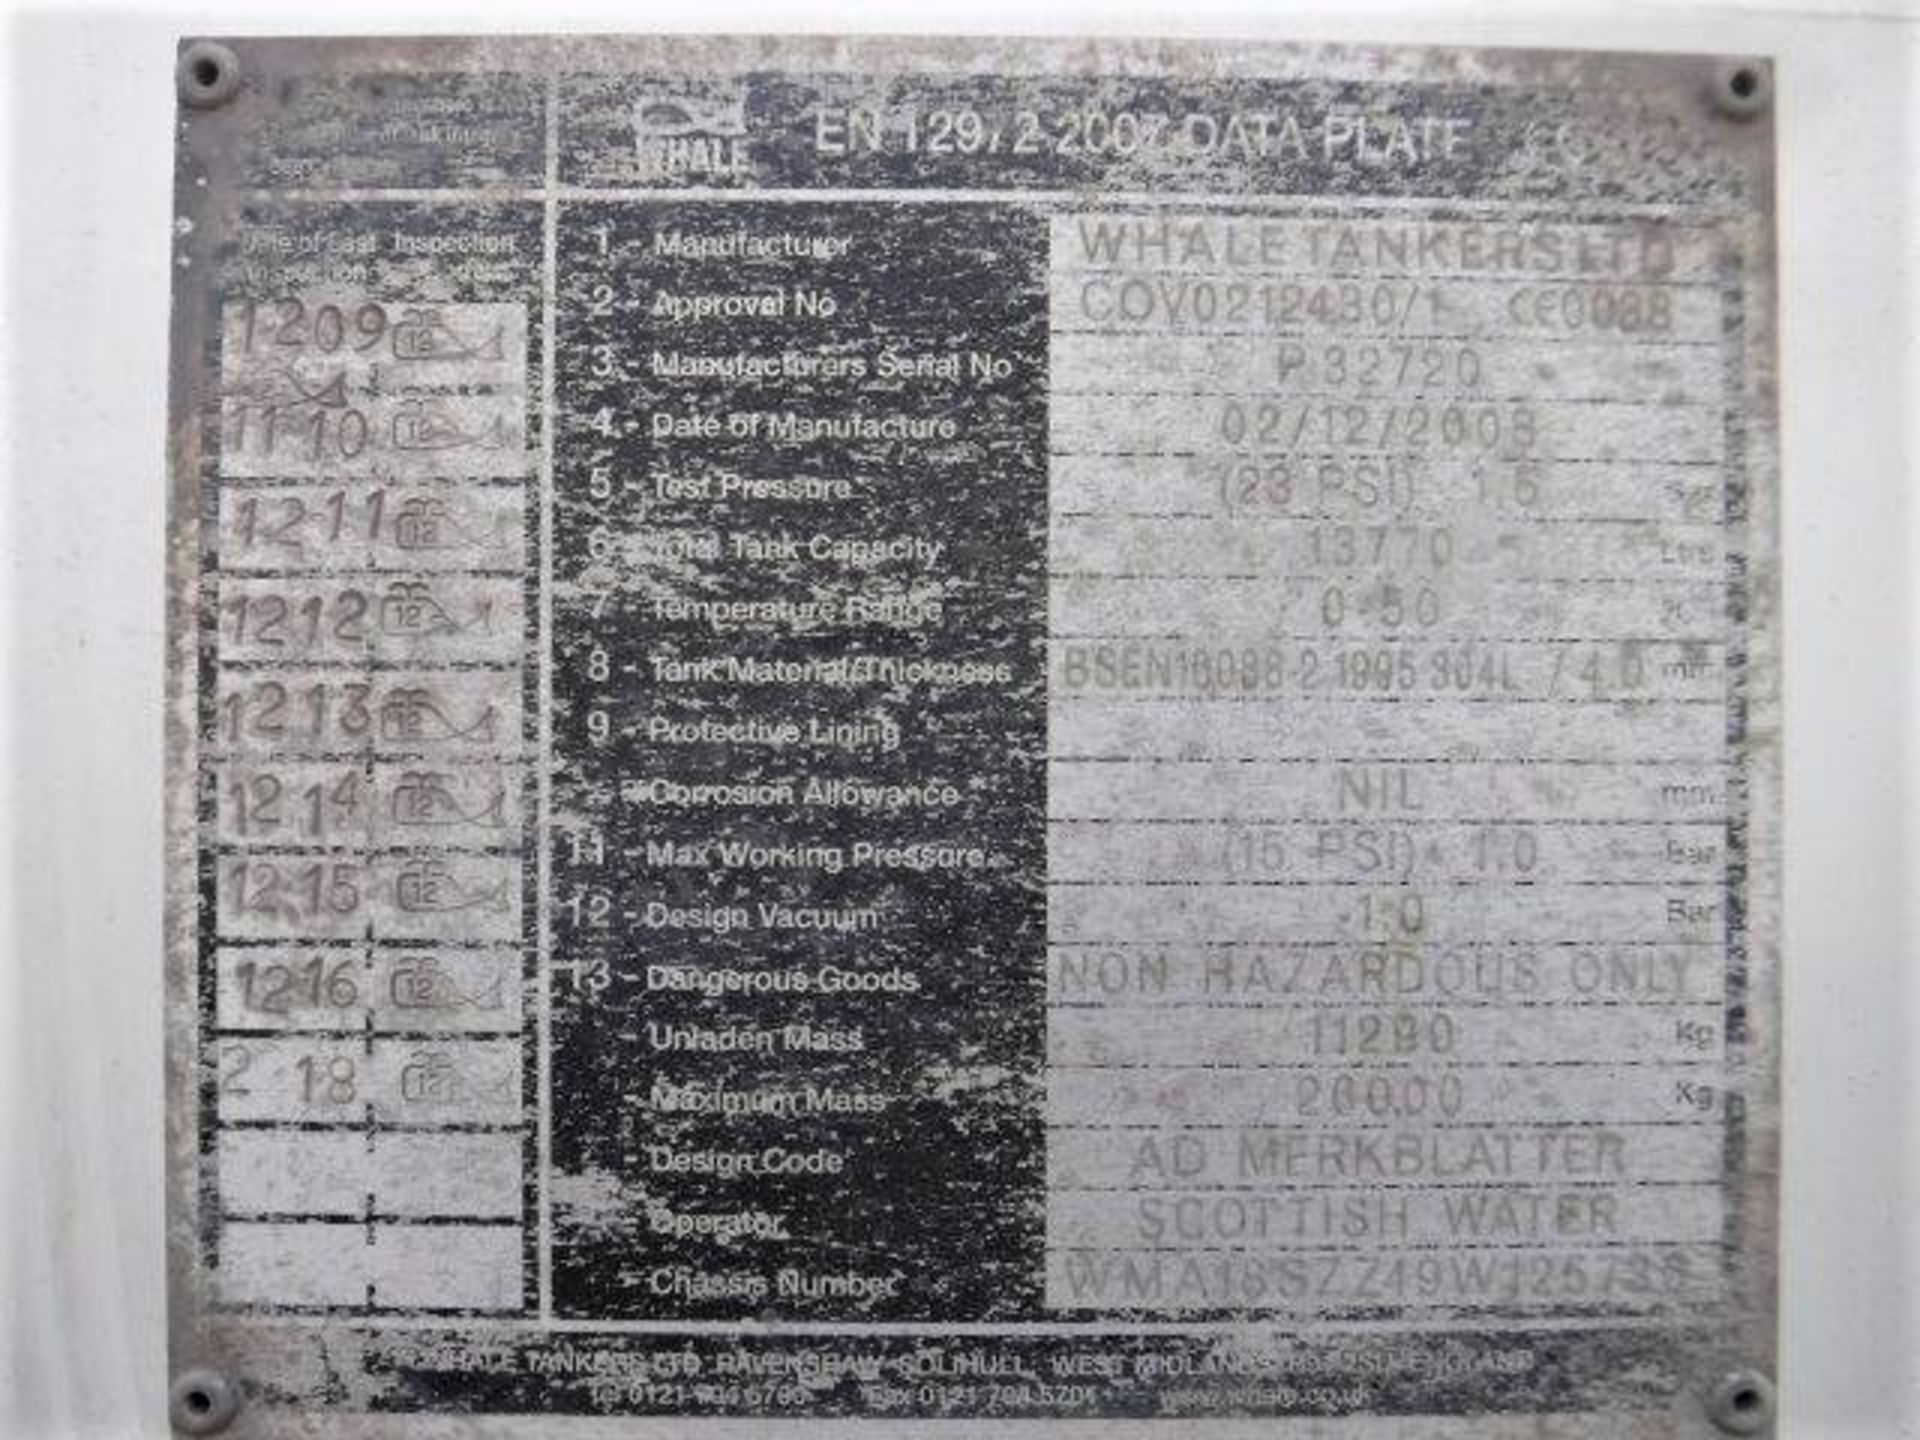 WHALE
EN 12972-2007 DATA PLATE CE
Date of Last Inspection
1209 12
11 10 12
12 11 12
12 12 12
12 13 12
12 14 12
12 15 12
12 16 12
2 18 12
1 - Manufacturer WHALE TANKERS LTD
2 - Approval No COV0212430/1 CE0038
3 - Manufacturers Serial No P32720
4 - Date of Manufacture 02/12/2008
5 - Test Pressure (23 PSI) 1.5 Bar
6 - Total Tank Capacity 13770 Ltrs
7 - Temperature Range 0-50
8 - Tank Material/Thickness BSEN10088-2 1995 304L / 4.0 mm
9 - Protective Lining
- Corrosion Allowance NIL mm
11 - Max Working Pressure (15 PSI) 1.0 Bar
12 - Design Vacuum -1.0 Bar
13 - Dangerous Goods NON HAZARDOUS ONLY
- Unladen Mass 11290 Kg
- Maximum Mass 26000 Kg
- Design Code AD MERKBLATTER
- Operator SCOTTISH WATER
- Chassis Number
WHALE TANKERS LTD RAVENSHAW SOLIHULL, WEST MIDLANDS ENGLAND
Fax 0121 704 5701 www.whale.co.uk